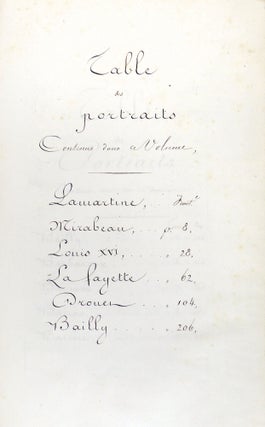 Table
des
portraits
Contenus dans ce Volume,
Lamartine, . . Front.e
Mirabeau, . p. 8,
Louis XVI, . . " 28,
La fayette . . . " 62,
Drouet . . . " 104,
Bailly . . . . . " 206,